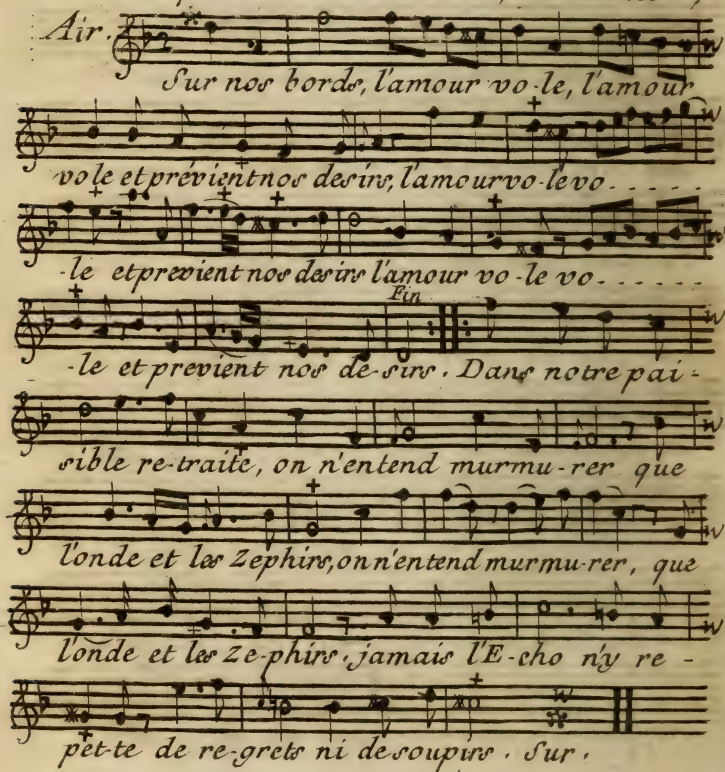 Air.
Sur nos bords, l'amour vo-le, l'amour
vole et prévient nos desirs, l'amour vo-le vo......
-le et previent nos desirs l'amour vo-le vo......
Fin
-le et previent nos de-sirs. Dans notre pai-
sible re-traite, on n'entend murmu-rer que
l'onde et les Zephirs, on n'entend murmu-rer, que
l'onde et les Ze-phirs. jamais l'E-cho n'y re-
pet-te de re-grets ni de soupirs. Sur.